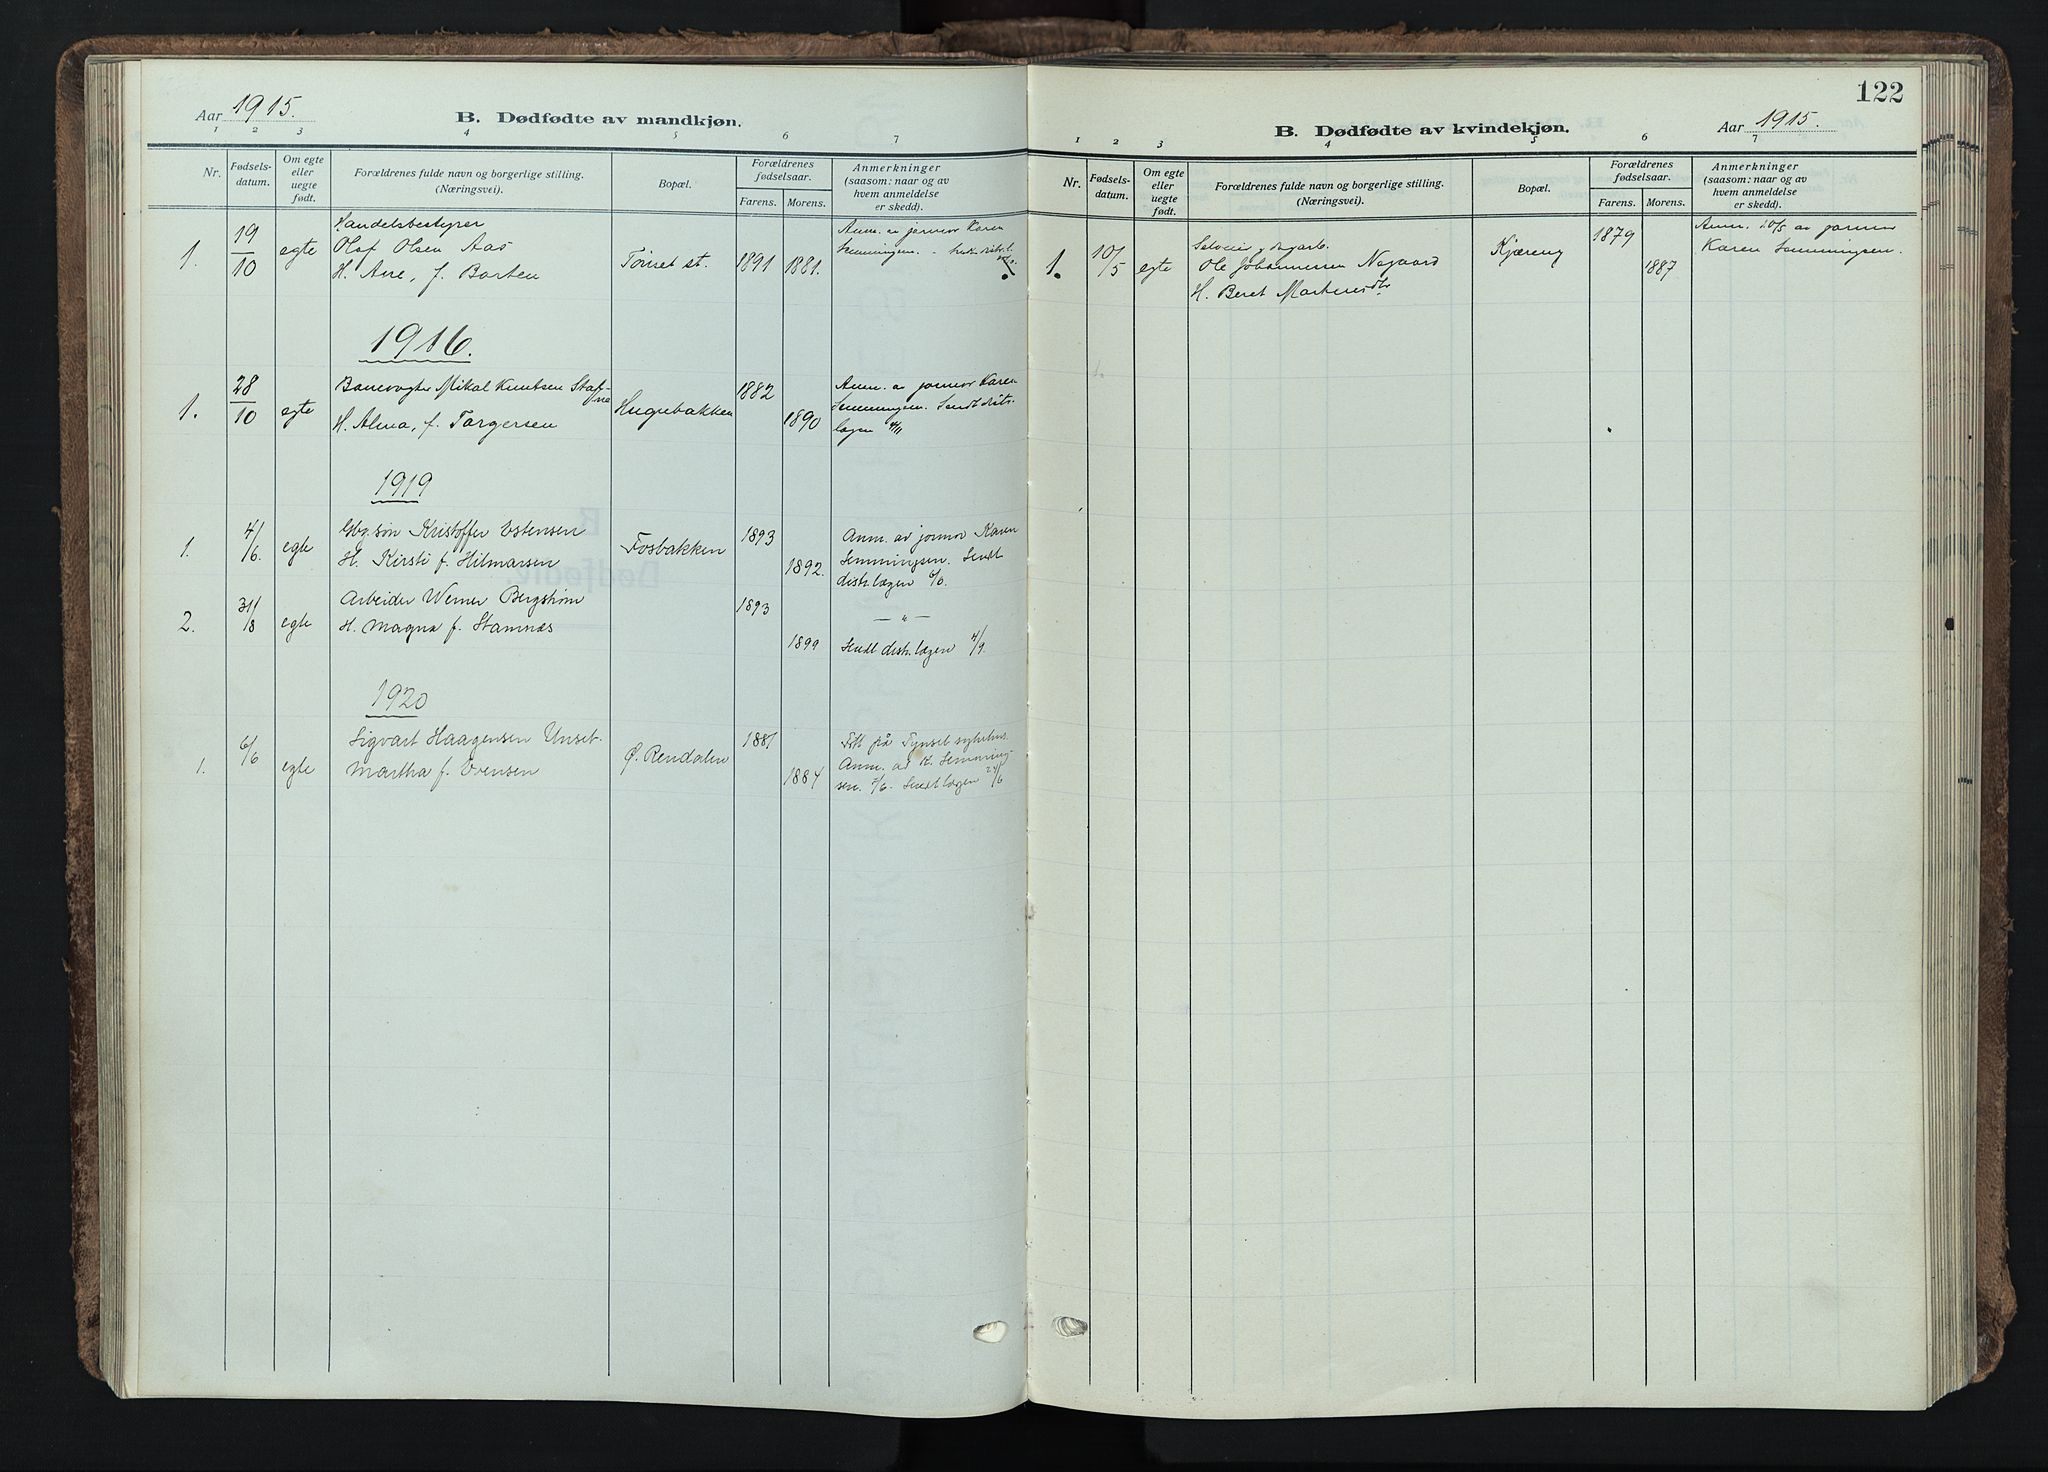 Aar 1915.
B. Dødfødte av mandkjøn.
1 2 3 4 5 6 7
Nr.
Fødsels-
datum.
Om egte
eller
uegte
født.
Forældrenes fulde navn og borgerlige stilling.
(Næringsvei).
Bopæl.
Forældrenes
fødselsaar.
Farens. Morens.
Anmerkninger
(saasom: naar og av
hvem anmeldelse
er skedd).
1. 19/10 egte
Handelsbestyrer
Olaf Olsen Aas
H. Ane, f. Borten
Tønset st. 1891 1881.
Anm. av jormor Karen
Semmingsen.
1916.
1. 28/10 egte
Banevogter Mikal Knutsen Staf-
ne
H. Alma, f. Torgersen
Hugubakken
1882
1890
Anm. av jormor Karen
Semmingsen. Sendt
lægen 4/11
1919
1. 4/6 egte
Gbr.søn Kristoffer Estensen
H. Kirsti f. Hilmarsen
Fosbakken
1893
1892.
Anm. av jormor Karen
Semmingsen. Sendt
distr.lægen
2. 31/8 egte
Arbeider Werner Bergstrøm
H. Magna f. Stamnes
1893
1899
— " —
Sendt distr. lægen 4/9.
1920
1. 6/6 egte
Sigvart Haagensen Unset.
Martha f. Evensen
Ø. Rendalen
1881
1884
Født på Tynset sykehus.
Anm. av K. Semming-
sen. 7/6. Sendt lægen 24/6
122
B. Dødfødte av kvindekjøn.
Aar 1915.
1 2 3 4 5 6 7
Nr.
Fødsels-
datum.
Om egte
eller
uegte
født.
Forældrenes fulde navn og borgerlige stilling.
(Næringsvei).
Bopæl.
Forældrenes
fødselsaar.
Farens. Morens.
Anmerkninger
(saasom: naar og av
hvem anmeldelse
er skedd).
1. 10/5 egte
Selveier og dagarb.
Ole Johannessen Nygaard
H. Beret Martinusdtr
Kjæreng
1879
1887
Anm. 10/5 av jormor
Karen Semmingsen.